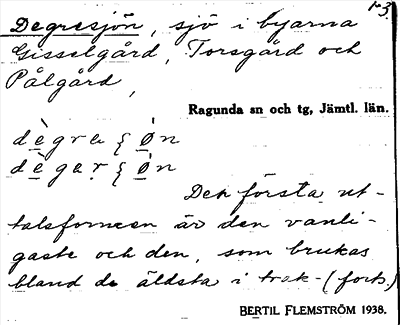 1-3.
Degresjön, sjö i byarna
Gisselgård, Torsgård och
Pålgård,
Ragunda sn och tg, Jämtl. län.
dègra ʃø̀n
dègar ʃø̀n
Den första ut-
talsformen är den vanli-
gaste och den, som brukas
bland de äldsta i trak- (forts.)
BERTIL FLEMSTRÖM 1938.